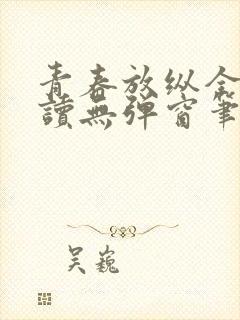 青春放纵全
讀無彈窗筆
吴巍